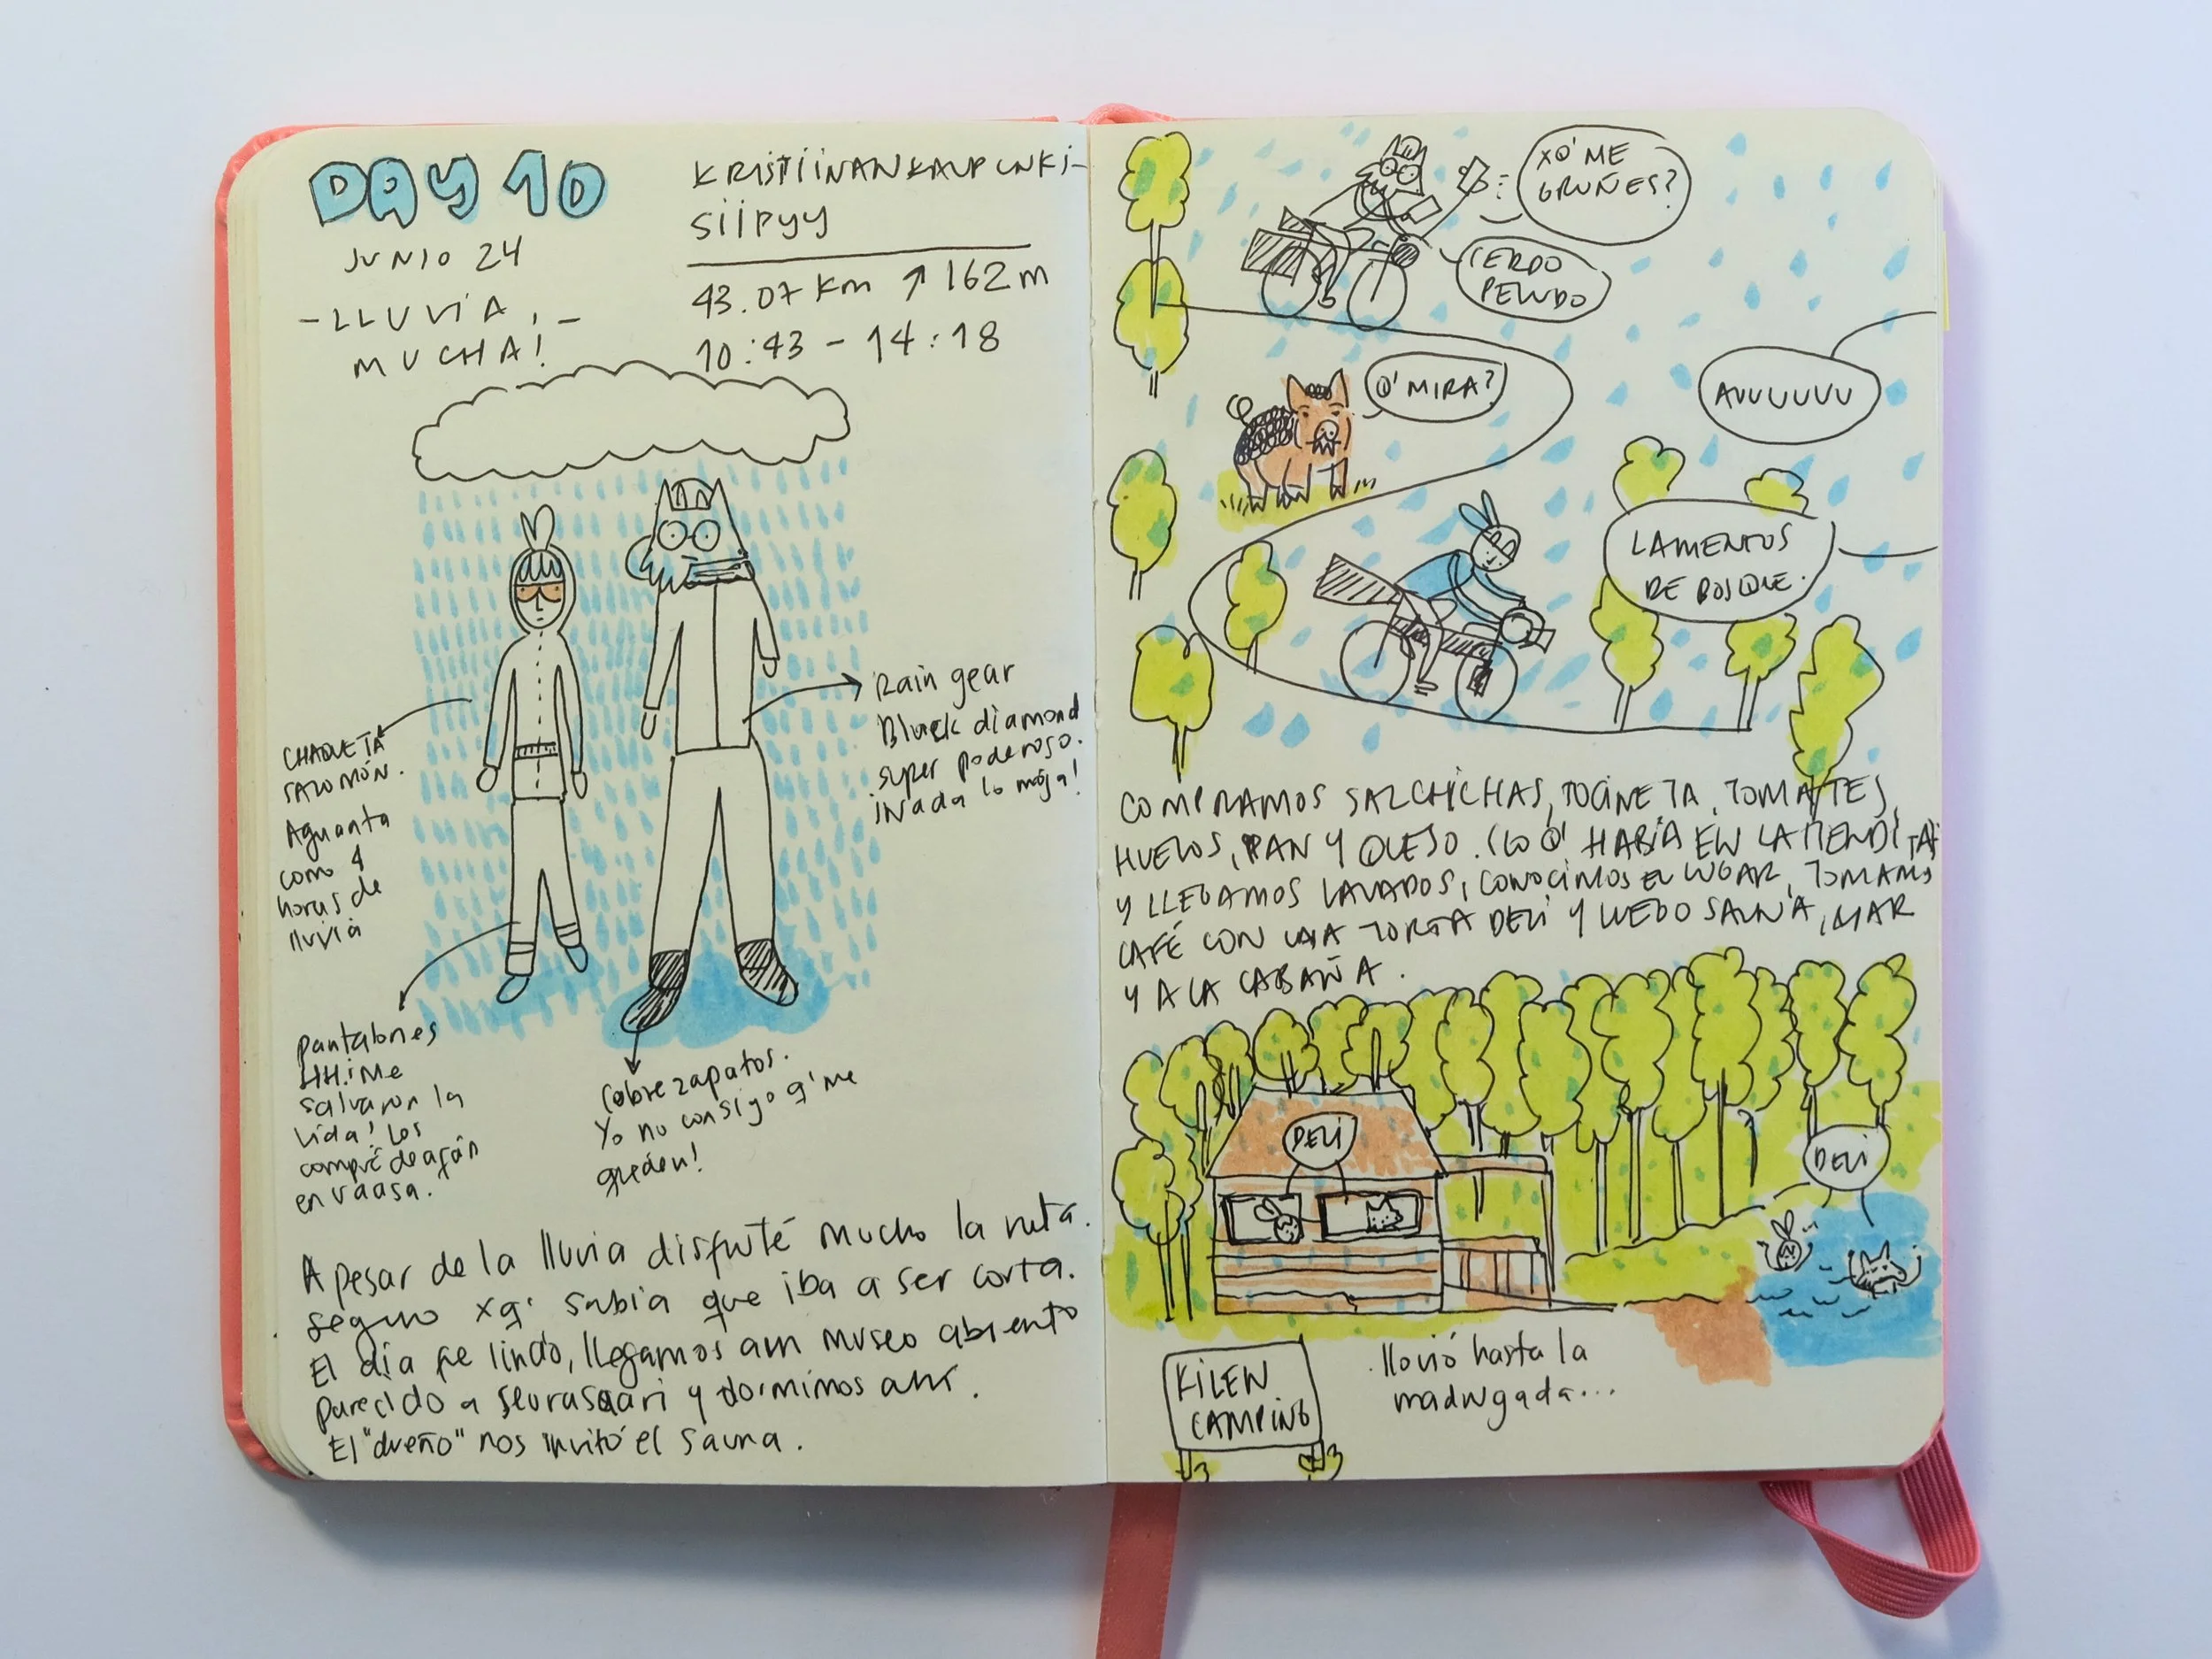 DAY 10
JUNIO 24
-LLUVIA,-
MUCHA!
KRISTIINANKAUPUNKI-
SIIPYY
43.07 Km ↗ 162 m
10:43 - 14:18
CHAQUETA
SALOMÓN.
Aguanta
como 4
horas de
lluvia
Rain gear
Black diamond
super poderoso.
¡Nada lo moja!
pantalones
HH. ¡Me
salvaron la
vida! Los
compré de afán
en vaasa.
Cobrezapatos.
Yo no consigo q' me
queden!
A pesar de la lluvia disfruté mucho la ruta.
seguro xq' sabia que iba a ser corta.
El dia fue lindo, llegamos a un museo abierto
parecido a seurasaari y dormimos ahí.
El "dueño" nos invitó el sauna.
XQ' ME
GRUÑES?
CERDO
PELUDO
Q' MIRA?
AUUUUUU
LAMENTOS
DE BOSQUE.
COMPRAMOS SALCHICHAS, TOCINETA, TOMATES,
HUEVOS, PAN Y QUESO. (LO Q' HABÍA EN LA TIENDITA)
Y LLEGAMOS LAVADOS, CONOCIMOS EL LUGAR, TOMAMOS
CAFÉ CON UNA TORTA DELI Y LUEGO SAUNA, MAR
Y A LA CABAÑA.
DELI
DELI
KILEN
CAMPING
llovió hasta la
madrugada...